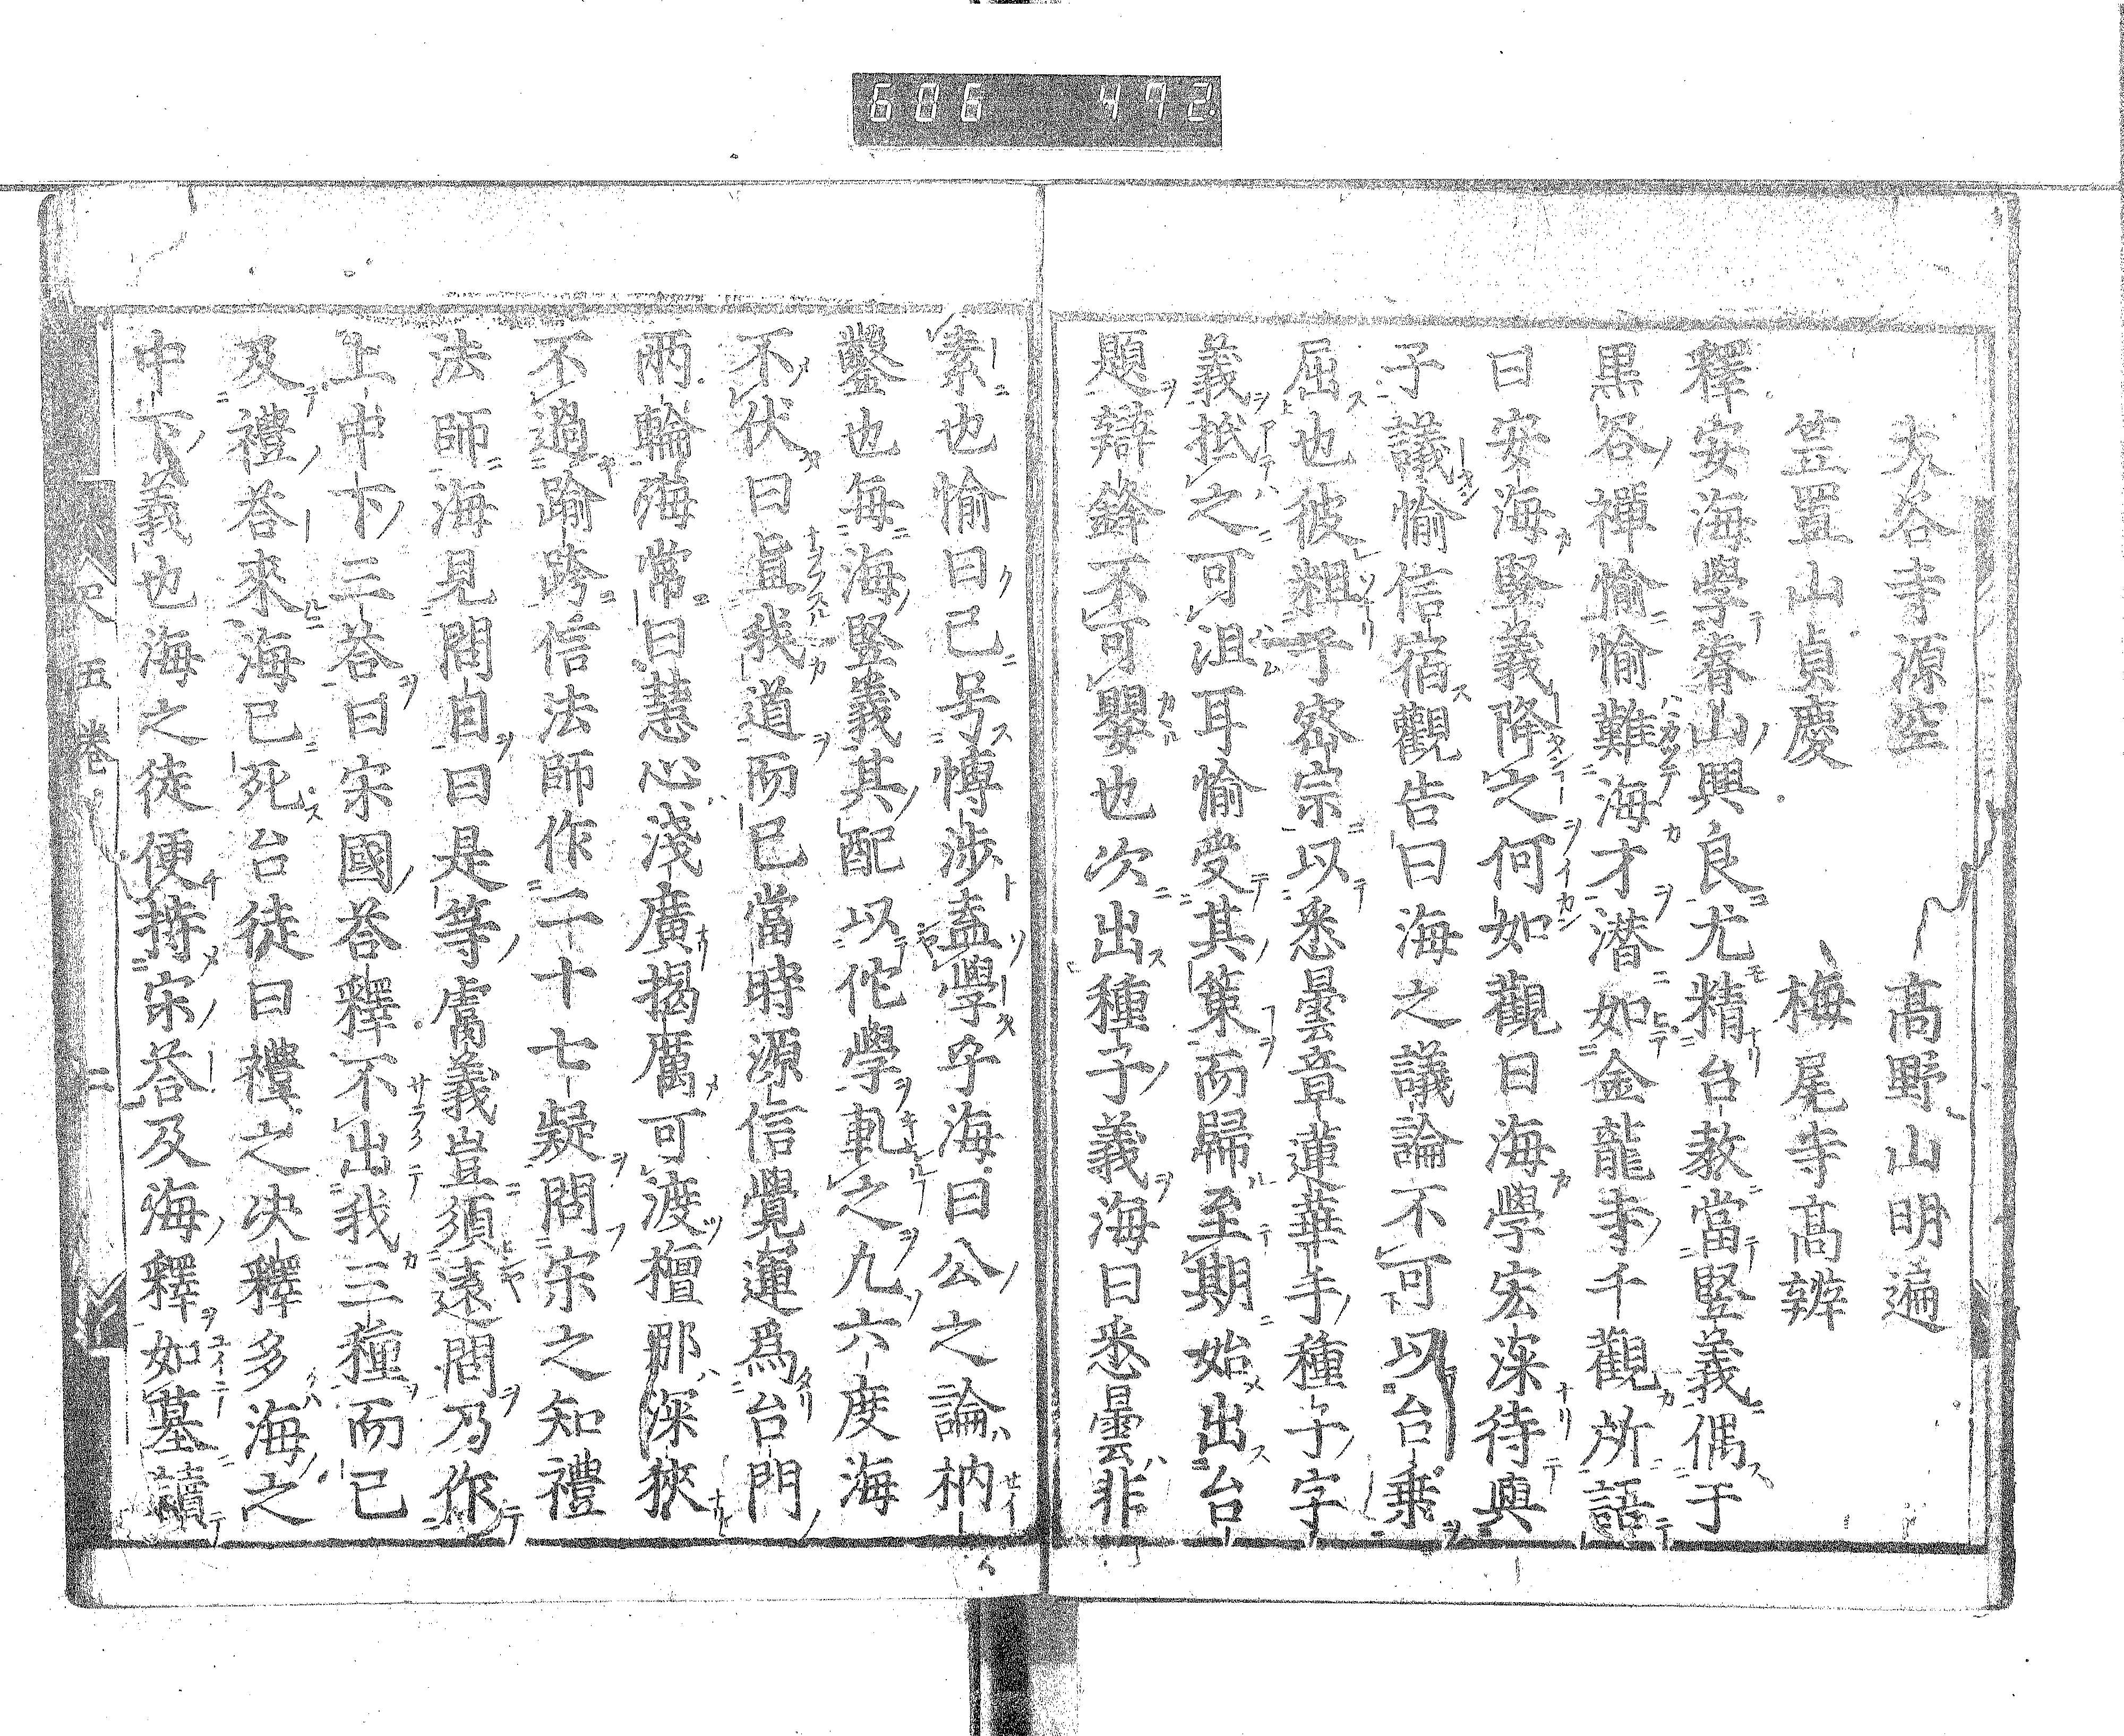 606 472
大谷寺源空 高野山明遍
笠置山貞慶 梅尾寺高辨
釋安海學睿山興良尤精台教當竪義偶于
黒谷禪愉愉難海才潜如金龍寺千觀所語
曰安海竪義降之何如觀曰海學宏深待與
子議愉信宿觀告曰海之議論不可以台乗
屈也彼粗于密宗以悉曇章蓮華手種子字
義抵之可沮耳愉受其策而歸至期始出台
題辯鋒不可嬰也次出種子義海曰悉曇非
素也愉曰已号愽涉盍學乎海曰公之論枘
鑿也毎海竪義其配以佗學軋之九六度海
不伏曰盍我道而已當時源信覺運爲台門
兩輪海常曰慧心淺廣揭厲可渡檀那深狹
不過踰跨信法師作二十七疑問宋之知禮
法師海見問目曰是等膚義豈須遠問乃作
上中下三荅曰宋國荅釋不出我三種而已
及禮荅來海已死台徒曰禮之决釋多海之
中下義也海之徒便持宋荅及海釋如墓讀
五卷 二